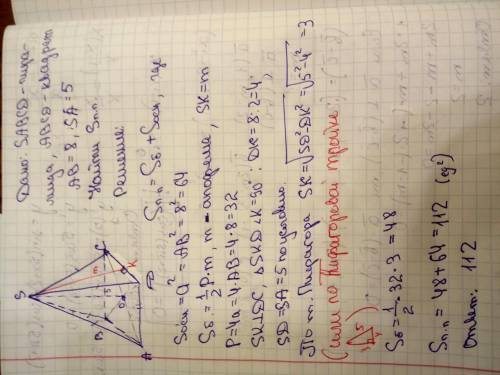 Дано: SABCD - пира-
мида, ABCD - квадрат
AB = 8, SA = 5
Найти Sп.п.
Решение:
S
B
C
m
K
5
O
A
D
Sп.п. = Sб + Sосн, где
Sосн = a² = AB² = 8² = 64
Sб = 1/2 P·m, m - апофема, SK = m
P = 4a = 4·AB = 4·8 = 32
SK⊥DC, ΔSKD ∠K = 90°; DK = 8:2 = 4,
SD = SA = 5 по условию.
По т. Пифагора SK = √SD²-DK² = √5²-4² = 3
(или по Пифагоровой тройке:
3 5
4
Sб = 1/2·32·3 = 48
Sп.п = 48 + 64 = 112 (ед²)
Ответ: 112